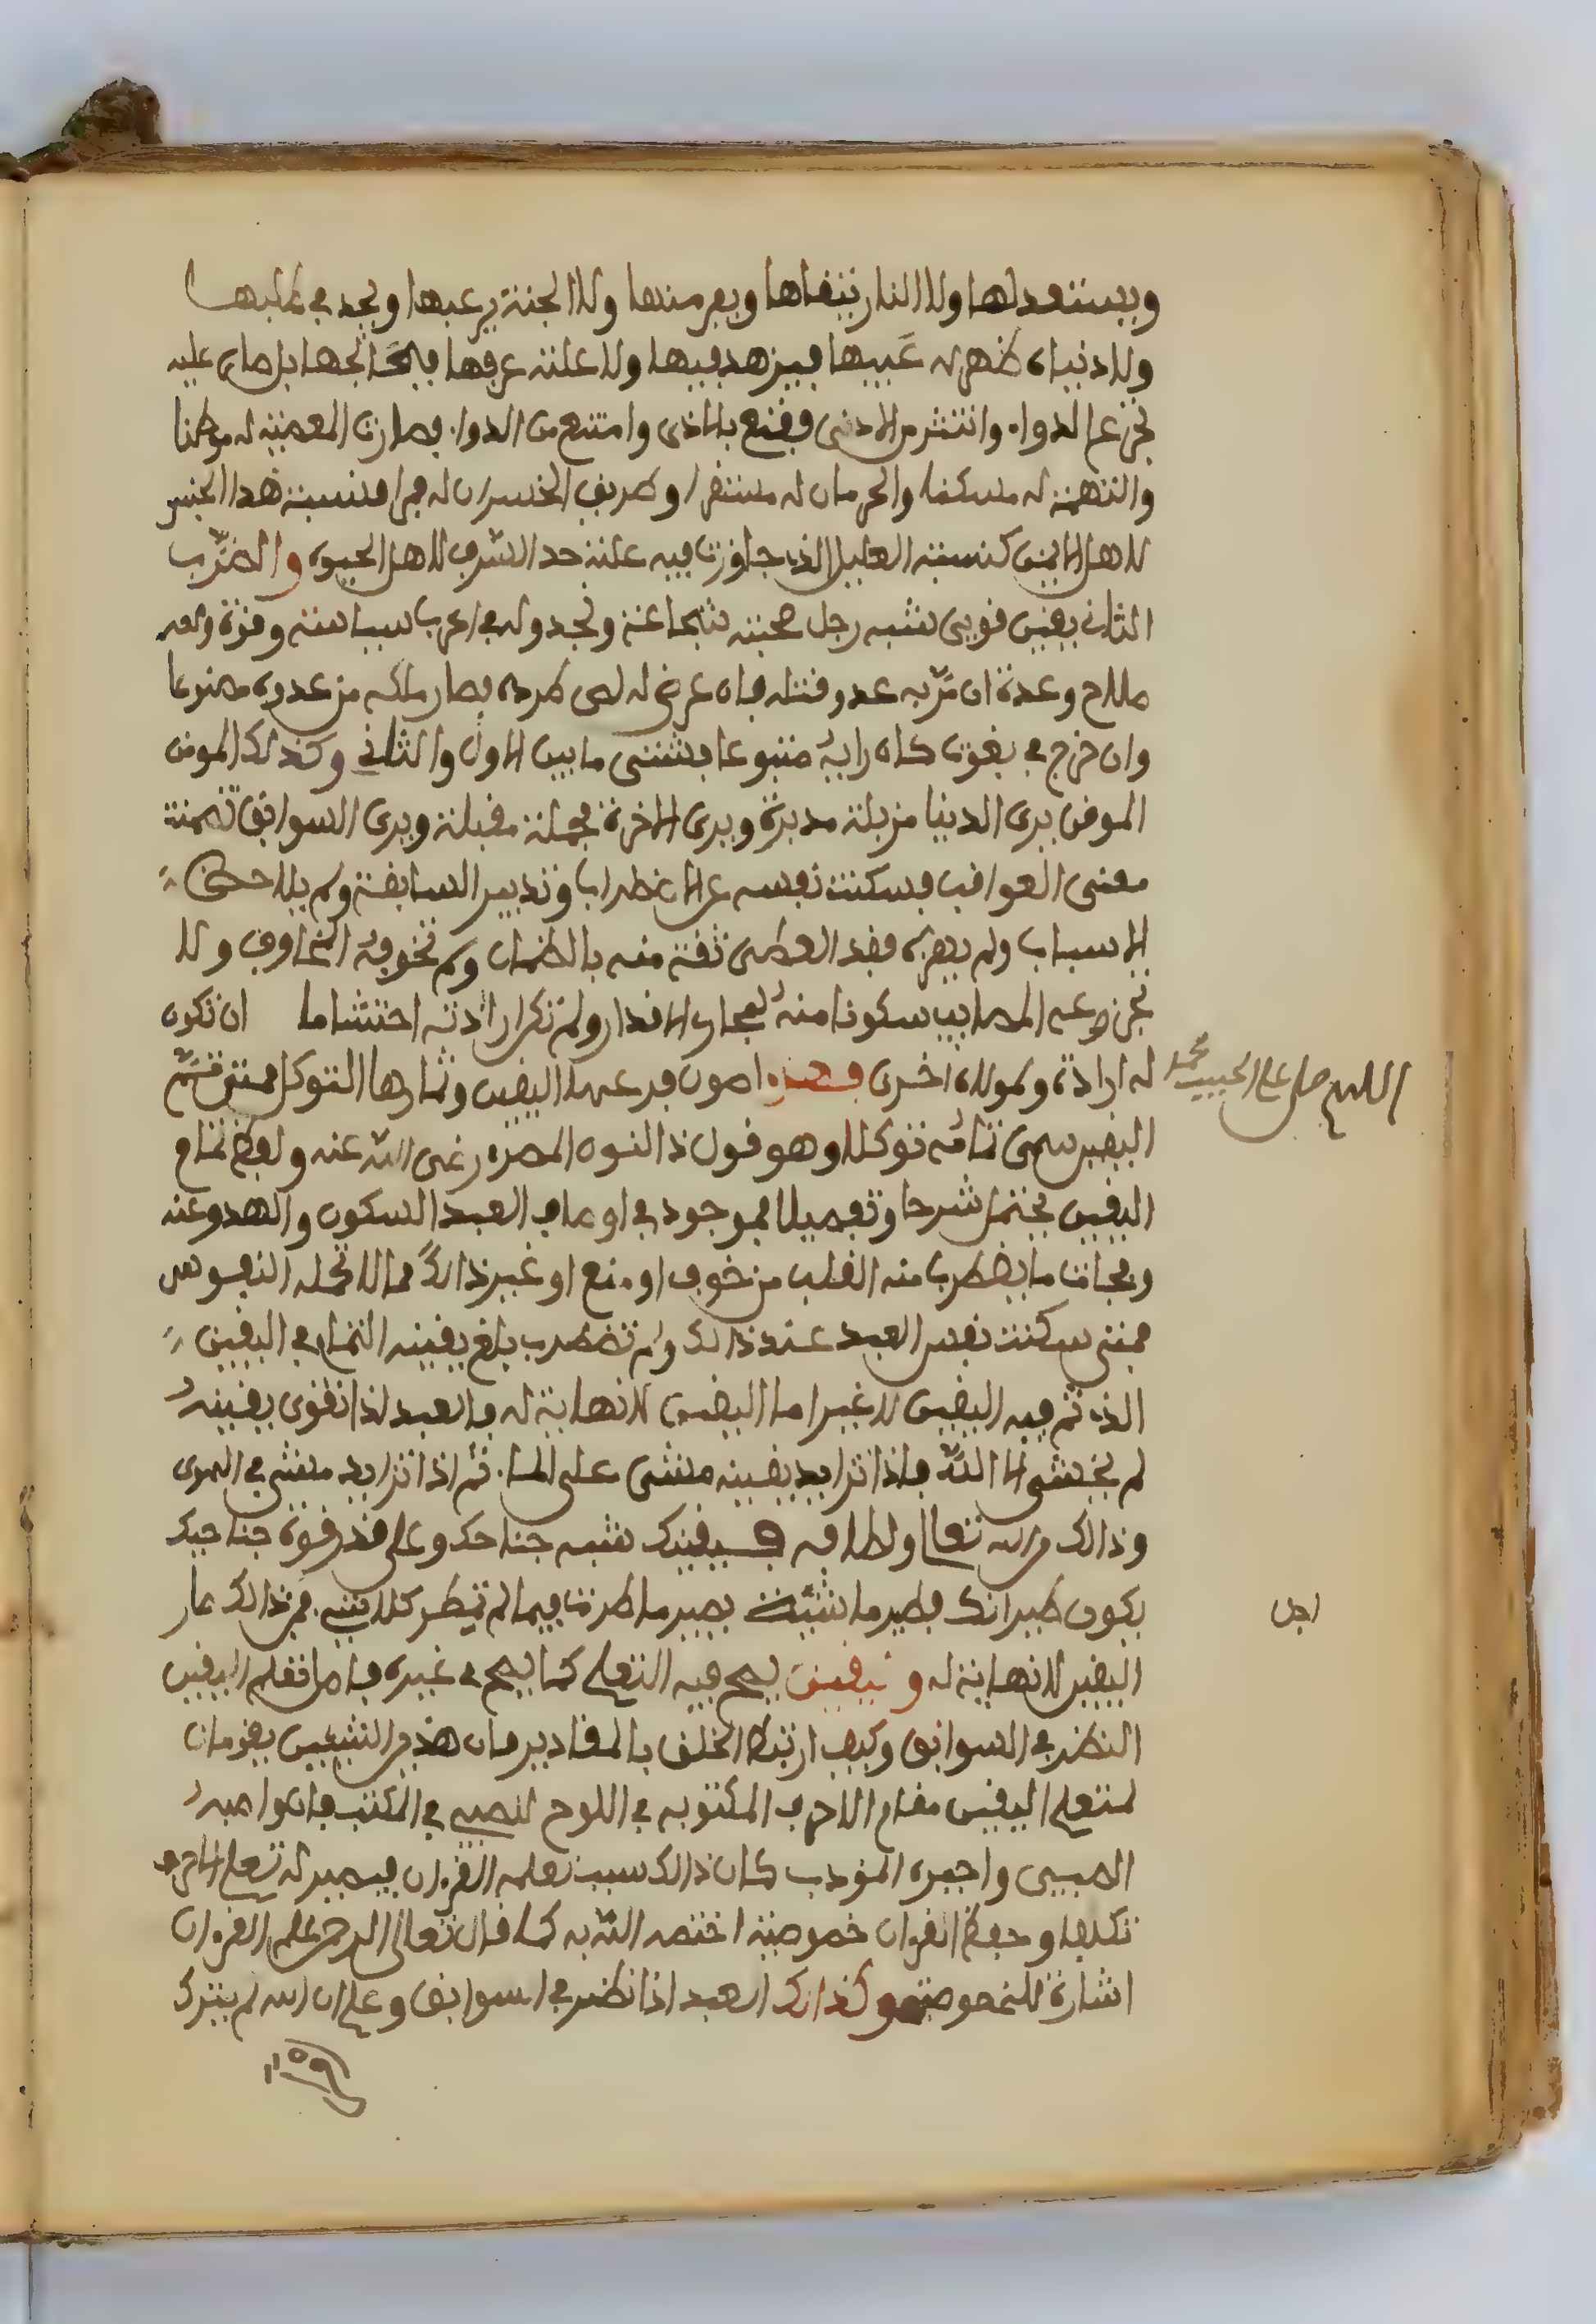 ويستعد لها ولا النار يتقاها ويفر منها ولا الجنة يرغبها ويجد في طلبها
ولا دنياه ظهر له عيبها فيزهد فيها ولا علة عرفها فيعالجها بل صابر عليه
عن الدواء وانتشر من الادنى فقنع بالاذى وامتنع من الدواء فصارت المعصية له موطنا
والتهمة له مسكنا والحرمان له مستقرا وطريق الخسران له فنسبة هذا الجنس
لاهل اليقين كنسبة العليل الذي جاوزت فيه علته حد الشرف لاهل الحيوة والضرب
الثاني يقين قوي شبه رجل صحبته شجاعة ونجد وله في الحرب سياسة وقوة ومعه
سلاح وعدة ان مر به عدو قتله فان عرض له لص طرده فصار ملكه من عدوه مصنوعا
وان خرج في كان رايه متبوعا ما بين الاول والثاني وكذلك المومن
الموقن يرى الدنيا مزبلة مدبرة ويرى الاخرة مقبلة ويرى السوابق
معنى العواقب فسكنت نفسه عن الاضطراب وتدبير السابقة ولم يلاحظ
الاسباب ولم فقد العطى ثقة منه بالضمان ولم تخوفه المخاوف ولا
على المصايب سكونا منه لمجاري الاقدار ولم تكن ارادته احتشاما ان تكون
له ارادة ولمولاه اخرى فهذه اصول فرعها اليقين وثمارها التوكل فمتى تم
اليقين سمى تمامه توكلا وهو قول ذا النون المصري رضي الله عنه ولفظ تمام
اليقين يحتمل شرحا وتفصيلا فموجود في اوصاف العبد السكون والهدو عند
مفاجات ما يضطرب منه القلب من خوف او منع او غير ذالك مما لا تحمله النفوس
فمتى سكنت نفس العبد عند ذالك ولم تضطرب بلغ يقينه التمام في اليقين
الذي تم فيه اليقين لا غير اما اليقين لا نهاية له فالعبد اذا تقوى يقينه
لم يخشى الا الله فاذا تزايد يقينه مشى على الماء ثم اذا تزايد مشى في الهوى
وذالك من الله تعالى ولطافه فيقينك شبه جناحك وعلى قدر قوة جناحيك
يكون طيرانك فطير ما شيت يصير ما طرت فيما لم تطر كلا شيء فمن ذالك صار
اليقين لا نهاية له ويقين يصح فيه التعلم كما يصح في غيره فاصل تعلم اليقين
النظر في السوابق وكيف ارتبط الخلق بالمقادير فان هذين الشيئين يقومان
لمتعلم اليقين مقام الاحرف المكتوبة في اللوح للصبي في المكتب فان واضب
الصبي واجبره المودب كان ذالك سبب تعلمه القرءان فيصير له تعلم الاحرف
تكليفا وحفظ القرءان خصوصية اختصه الله به كما قال تعالى الرحمن علم القرءان
اشارة للخصوصية وكذالك العبد اذا نظر في السوابق وعلم ان الله لم يترك
اللهم صل على الحبيب محمد
اجل